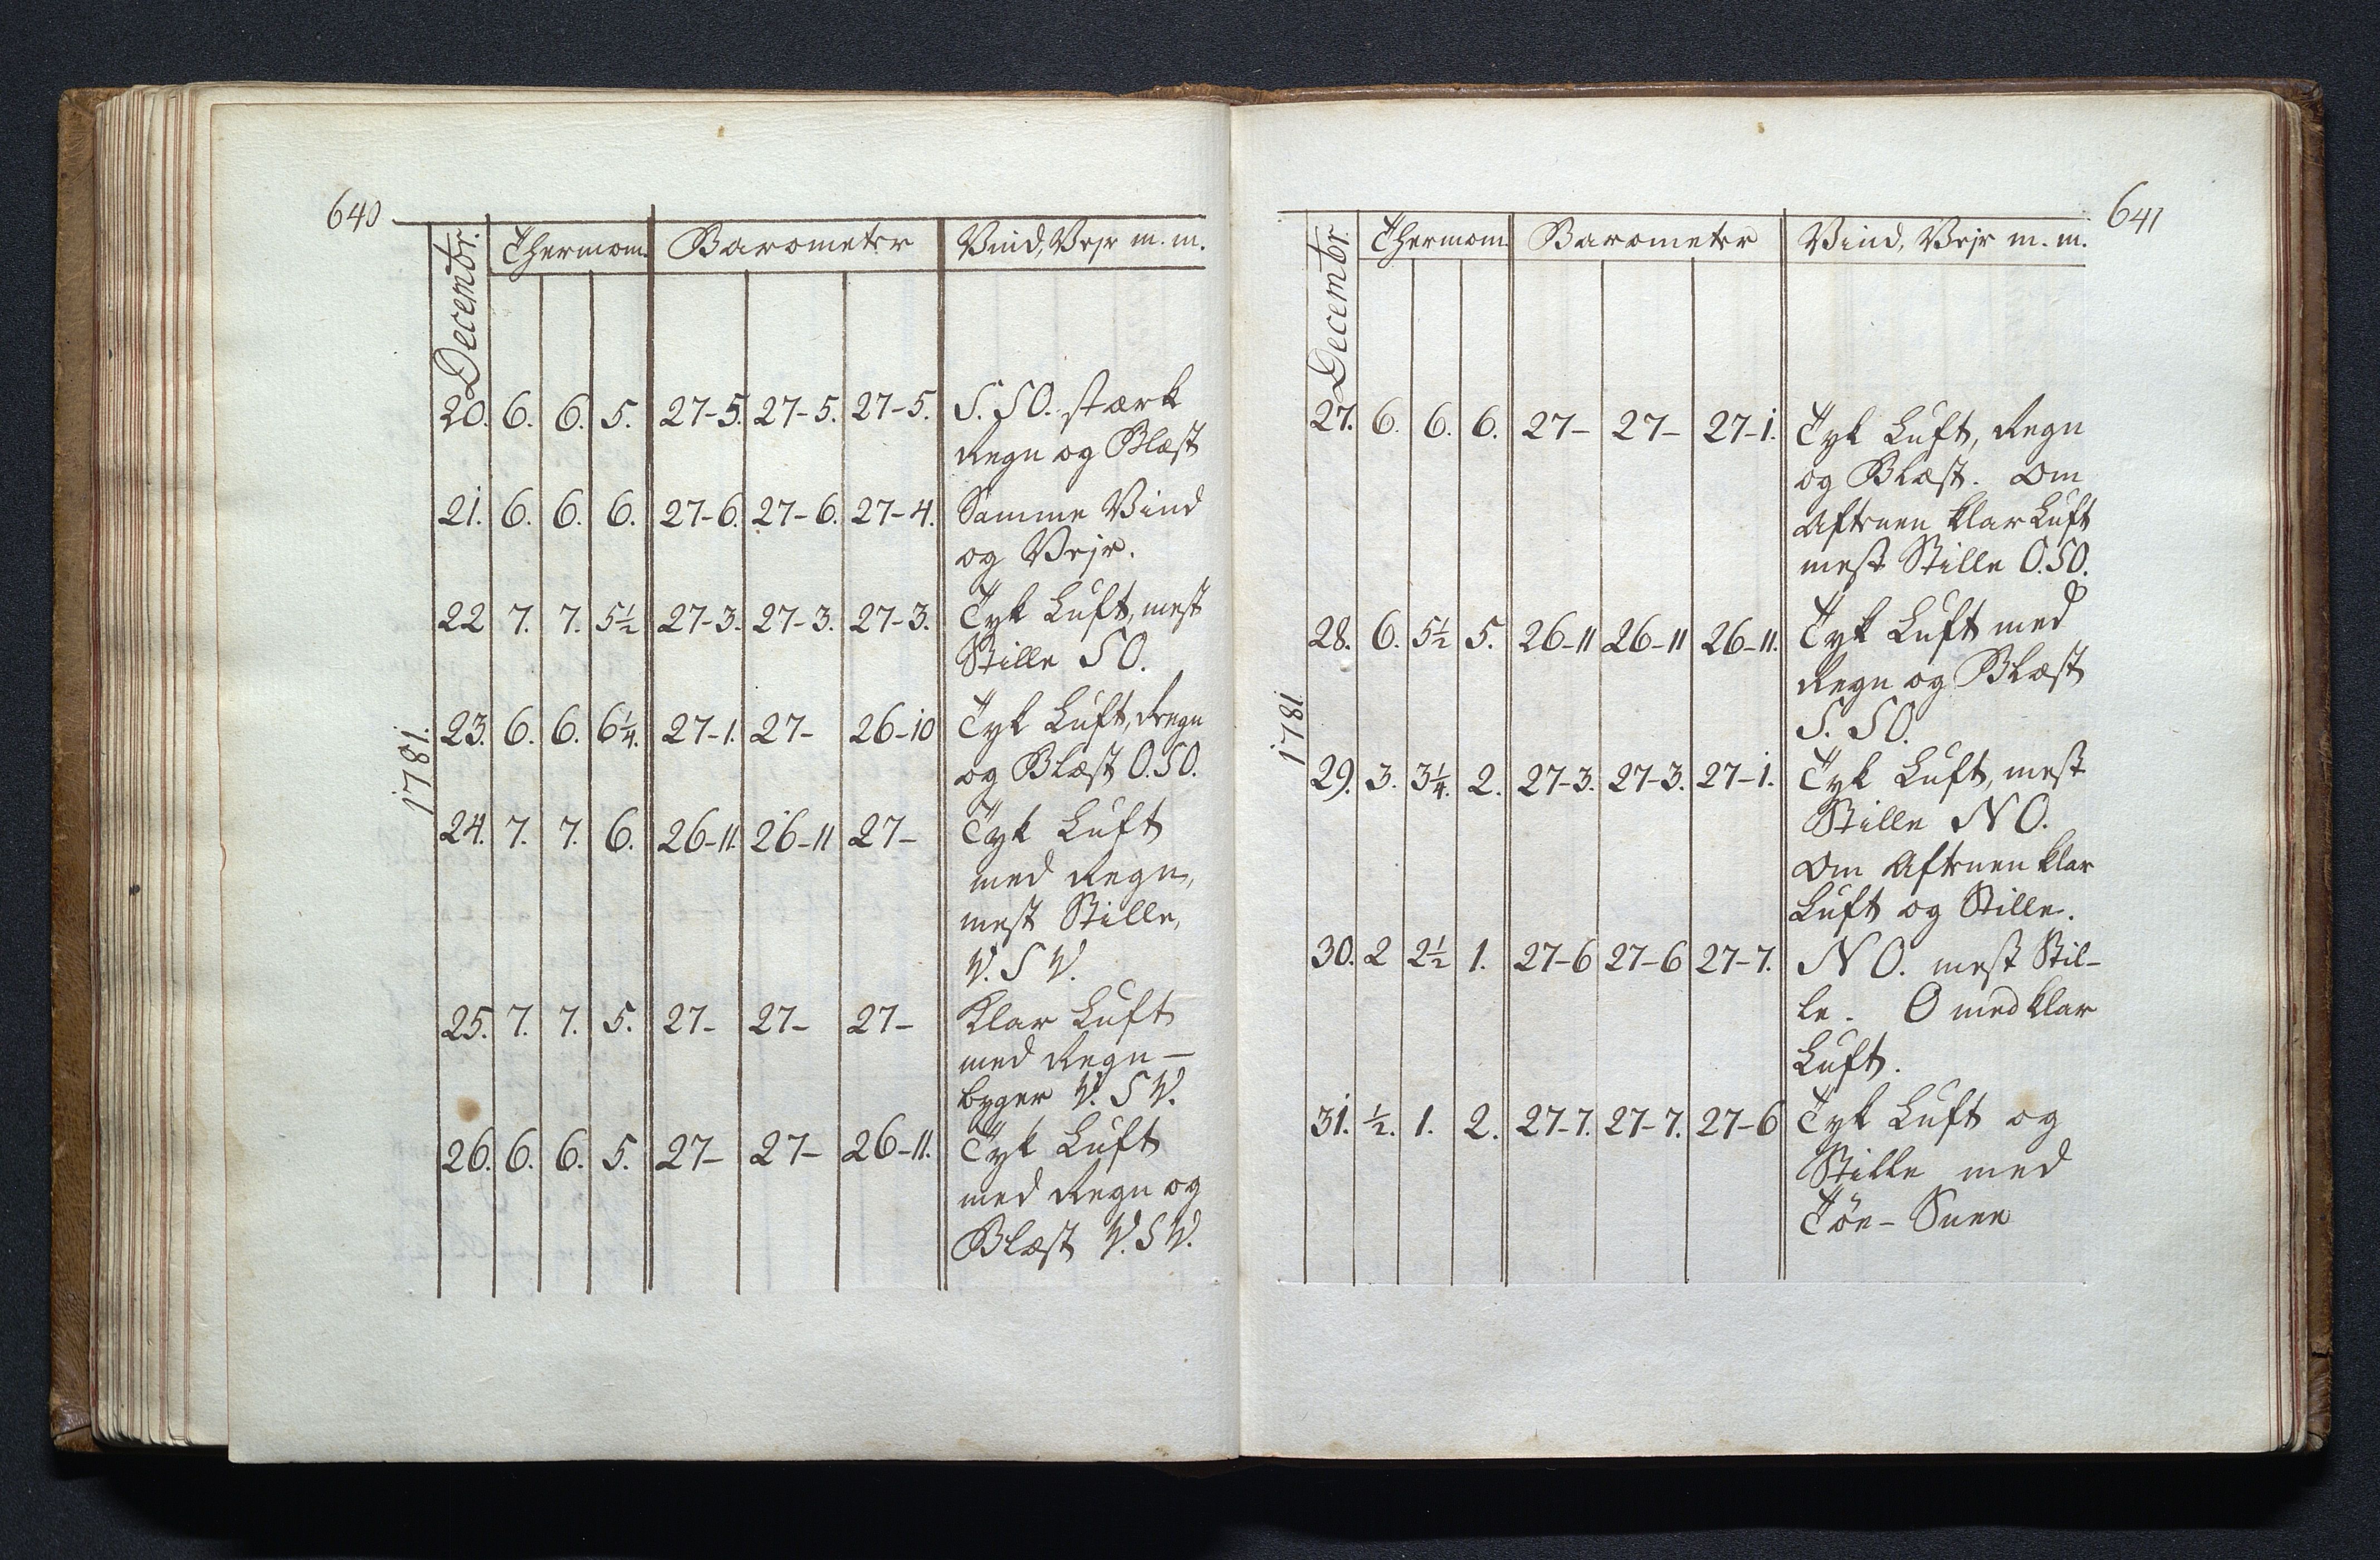 640
Decembr. Thermom. Barometer Vind, Vejr m. m.
20. 6. 6. 5. 27-5. 27-5. 27-5. S. SO. stærk
Regn og Blæst
21. 6. 6. 6. 27-6. 27-6. 27-4. Samme Vind
og Vejr.
22 7. 7. 5½ 27-3. 27-3. 27-3. Tyk Luft, mest
Stille SO.
23. 6. 6. 6¼. 27-1. 27- 26-10 Tyk Luft, Regn
og Blæst O.SO.
1781.
24. 7. 7. 6. 26-11. 26-11 27- Tyk Luft
med Regn,
mest Stille,
V. SV.
25. 7. 7. 5. 27- 27- 27- Klar Luft
med Regn-
byger V. SV.
26. 6. 6. 5. 27- 27- 26-11. Tyk Luft
med Regn og
Blæst V. SV.
641
Decembr. Thermom. Barometer Vind, Vejr m. m.
27. 6. 6. 6. 27- 27- 27-1. Tyk Luft, Regn
og Blæst. Om
Aftenen klar Luft
mest Stille O.SO.
28. 6. 5½ 5. 26-11 26-11 26-11. Tyk Luft med
Regn og Blæst
S. SO.
1781
29. 3. 3¼. 2. 27-3. 27-3. 27-1. Tyk Luft, mest
Stille NO.
Om Aftenen klar
Luft og Stille.
30. 2 2½ 1. 27-6 27-6 27-7. NO. mest Stil-
le. O med klar
Luft.
31. ½. 1. 2. 27-7. 27-7. 27-6 Tyk Luft og
Stille med
Tøe-Snee